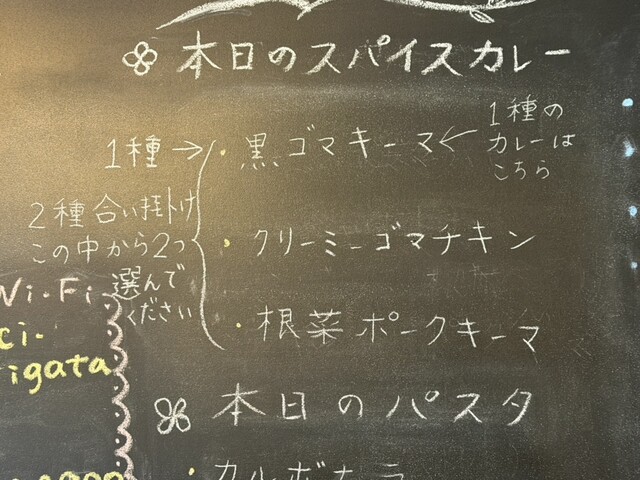 本日のスパイスカレー
1種→
・黒ゴマキーマ←
1種の
カレーは
こちら
2種合い掛け
この中から2つ
選んで
ください
・クリーミーゴマチキン
・根菜ポークキーマ
Wi.Fi.
ci.
igata
本日のパスタ
・カルボナーラ